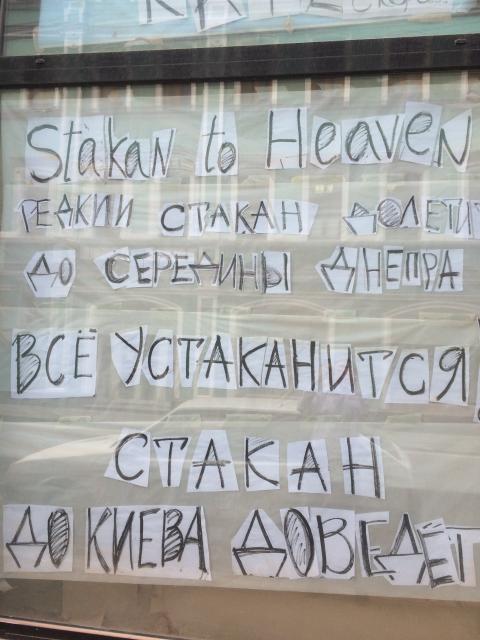 Stakan to Heaven
РЕДКИЙ СТАКАН ДОЛЕТИТ
ДО СЕРЕДИНЫ ДНЕПРА
ВСЁ УСТАКАНИТСЯ
СТАКАН
ДО КИЕВА ДОВЕДЁТ